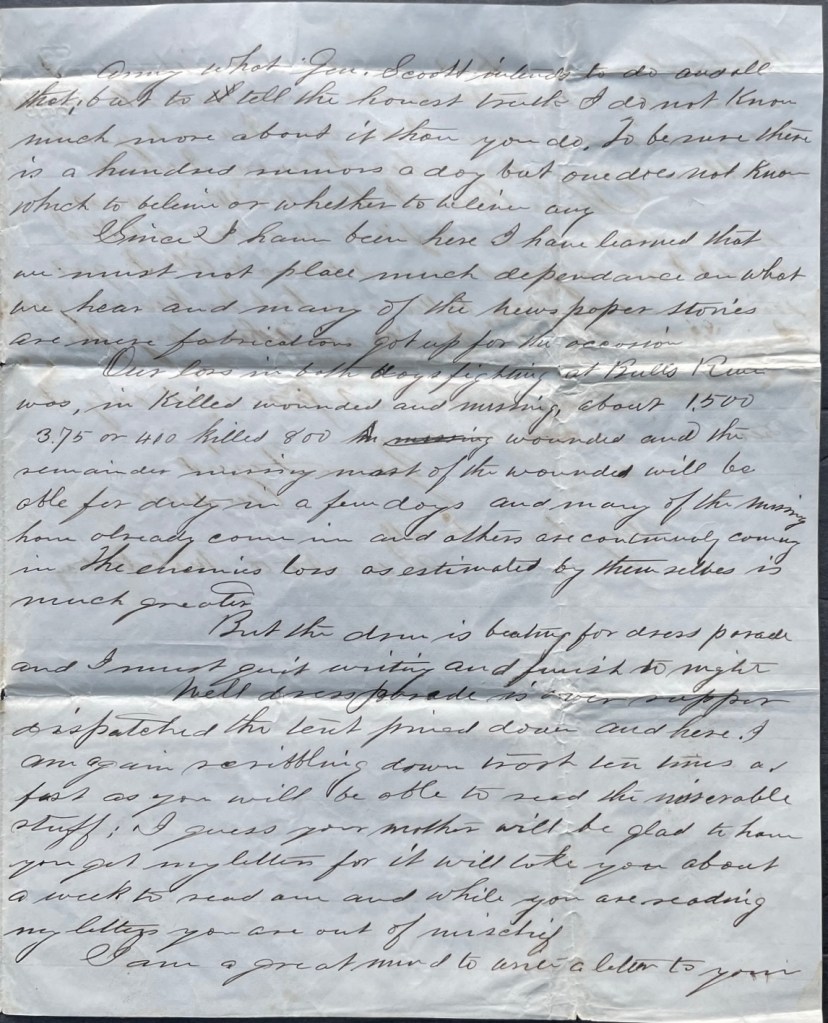 Army what Gen. Scott intends to do and all
that, but to tell the honest truth I do not Know
much more about it than you do. To be sure there
is a hundred rumors a day but one does not Know
which to believe or whether to believe any
Since I have been here I have learned that
we must not place much dependance on what
we hear and many of the newspaper stories
are mere fabrications got up for the occasion
Our loss in both days fighting at Bulls Run
was, in Killed wounded and missing, about 1,500
375 or 400 killed 800 missing wounded and the
remainder missing most of the wounded will be
able for duty in a few days and many of the missing
have already come in and others are continualy coming
in The enemies loss as estimated by themselves is
much greater
But the drum is beating for dress parade
and I must quit writing and finish to night
Well dress parade is over supper
dispatched the tent pined down and here I
am again scribbling down trash ten times as
fast as you will be able to read the miserable
stuff; I guess your mother will be glad to have
you get my letters for it will take you about
a week to read one and while you are reading
my letters you are out of mischief
I am a great mind to write a letter to your